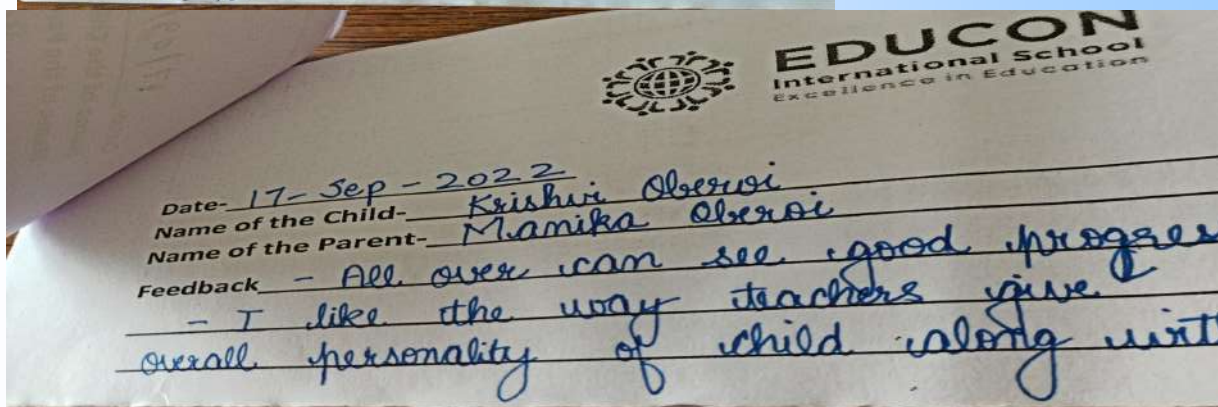 EDUCON
International School
Excellence in Education
Date- 17-Sep-2022
Name of the Child- Krishvi Oberoi
Name of the Parent- Manika Oberoi
Feedback - All over can see good progres
- I like the way teachers give
overall personality of child along wit